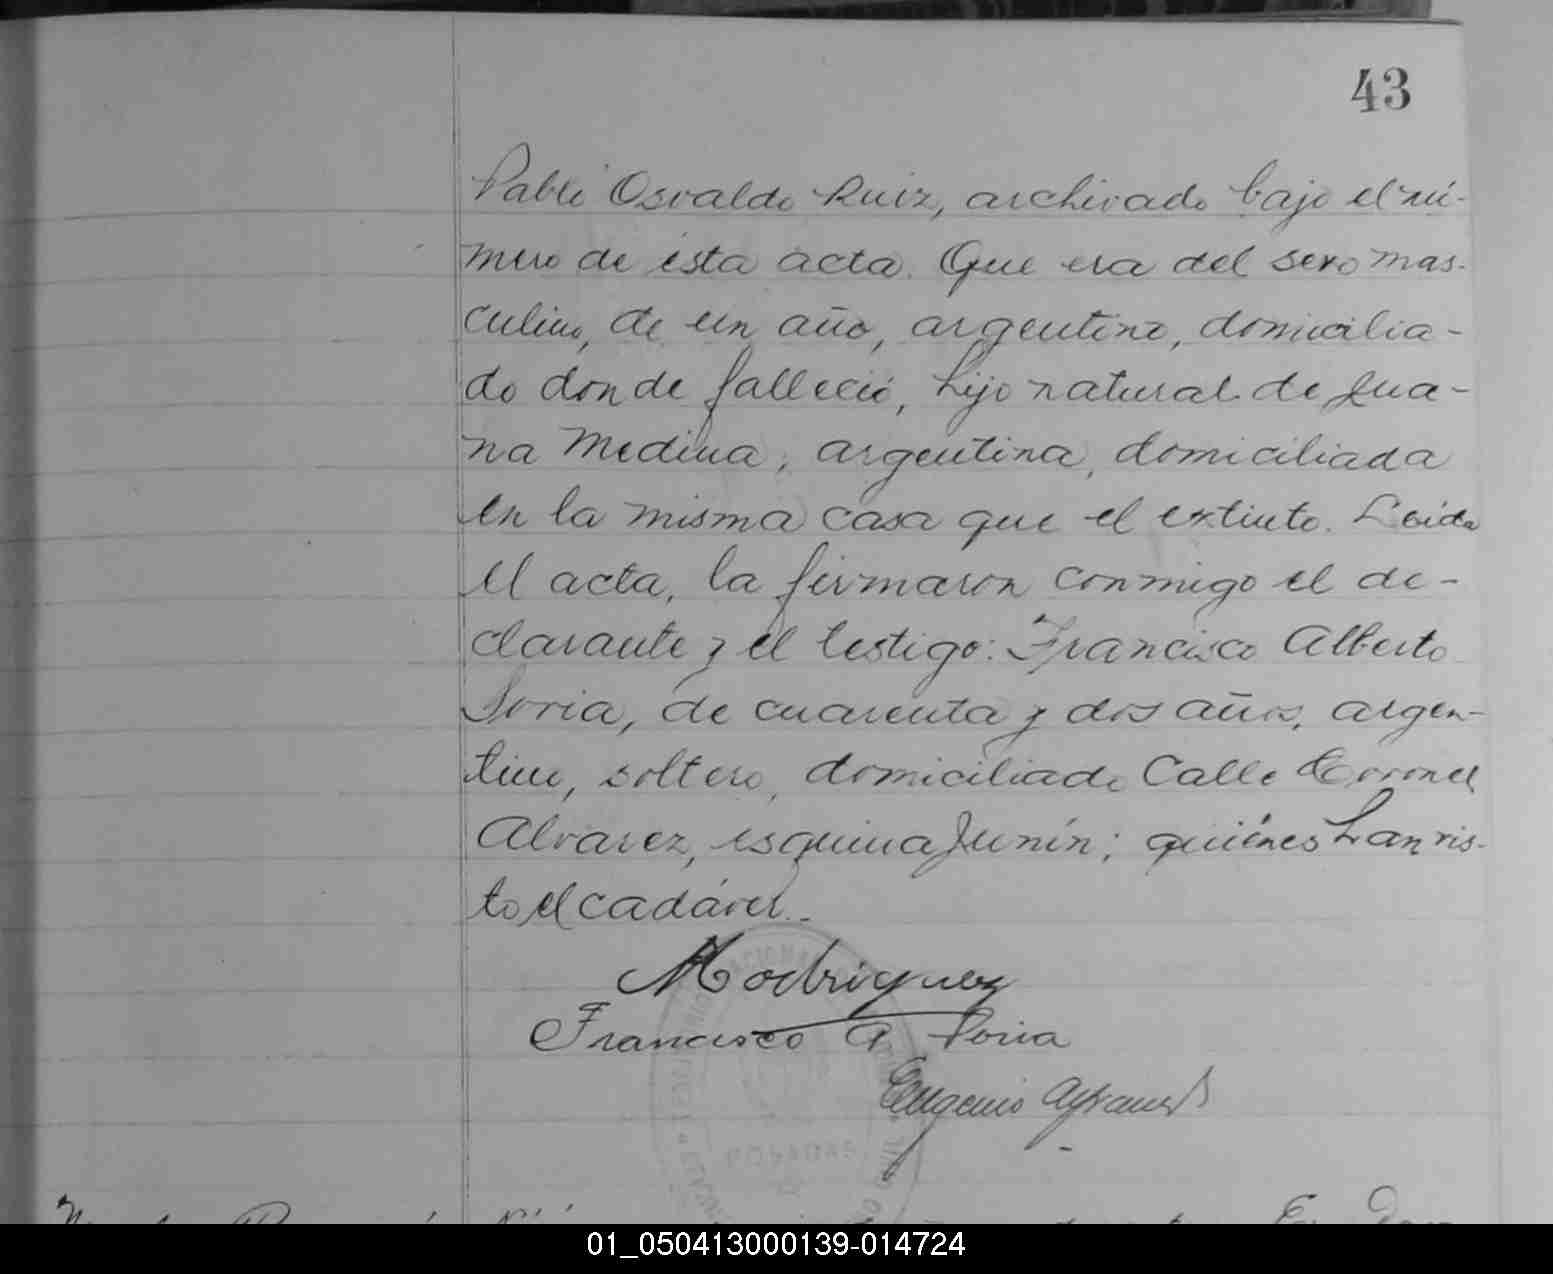 43
Pablo Osvaldo Ruiz, archivado bajo el nú-
mero de ésta acta. Que era del sexo mas-
culino, de un año, argentino, domicilia-
do donde falleció, hijo natural de Jua-
na Medina, argentina, domiciliada
en la misma casa que el extinto. Leida
el acta, la firmaron conmigo el de-
clarante y el testigo: Francisco Alberto
Soria, de cuarenta y dos años, argen-
tino, soltero, domiciliado Calle Coronel
Alvarez, esquina Junín; quiénes han vis-
to el cadáver.-
Rodriguez
Francisco A Soria
Eugenio
POSADAS
01_050413000139-014724